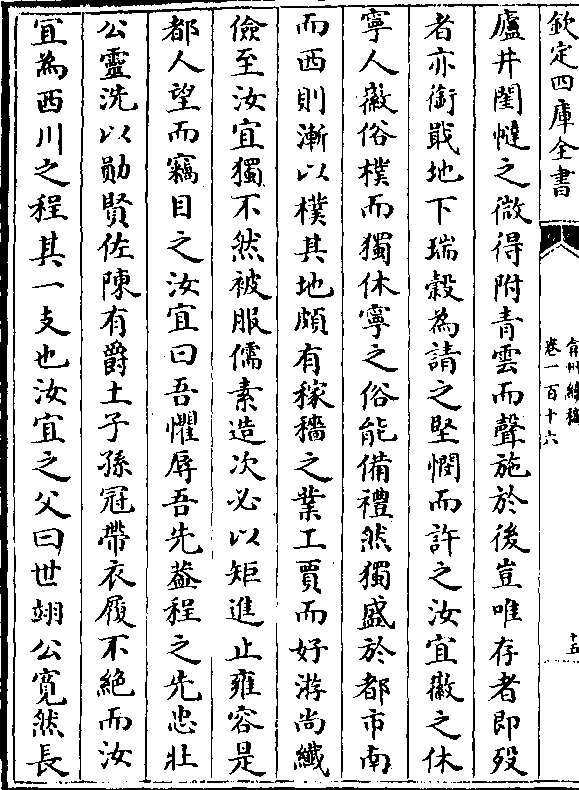 欽定四庫全書
弇州續稿
卷一百十六
十五
廬井閨㦬之微得附青雲而聲施於後豈唯存者即殁
者亦銜戢地下瑞穀為請之堅憫而許之汝宜徽之休
寧人徽俗樸而獨休寧之俗能備禮然獨盛於都市南
而西則漸以樸其地頗有稼穡之業工賈而好游尚纖
儉至汝宜獨不然被服儒素造次必以矩進止雍容是
都人望而竊目之汝宜曰吾懼辱吾先葢程之先忠壯
公靈洗以勛賢佐陳有爵土子孫冠帶衣履不絶而汝
宜為西川之程其一支也汝宜之父曰世翊公寛然長